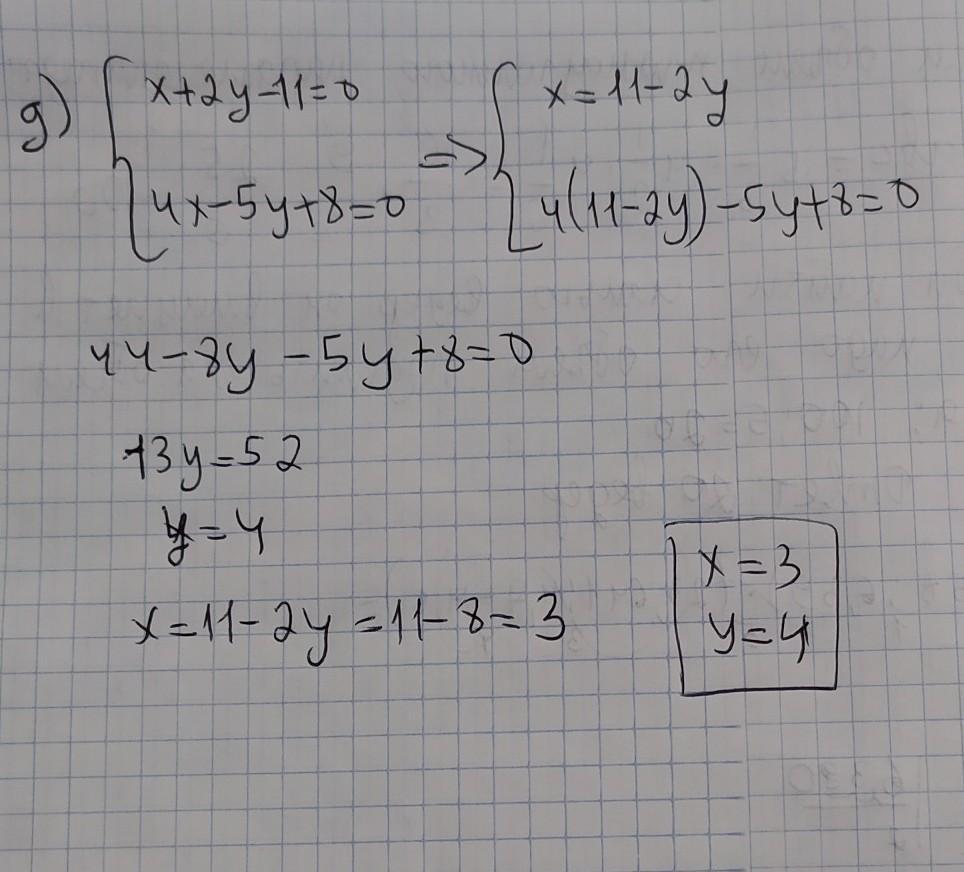 g) { x+2y-11=0 => { x=11-2y
4x-5y+8=0 4(11-2y)-5y+8=0
44-8y-5y+8=0
13y=52
y=4
x=11-2y=11-8=3
x=3
y=4